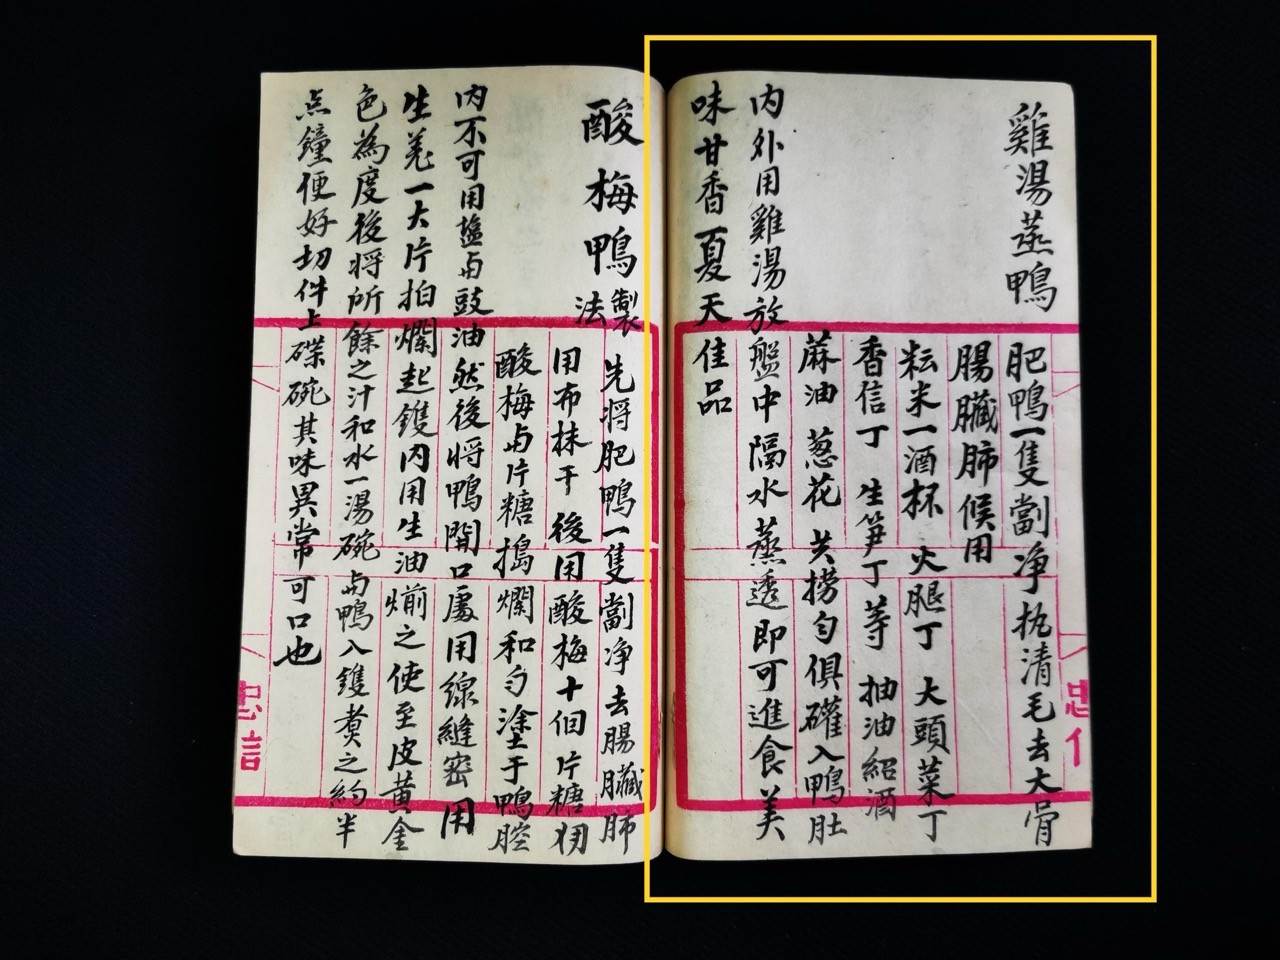 雞湯蒸鴨
肥鴨一隻劏净执清毛去大骨
腸臟肺候用
耘米一酒杯 火腿丁 大頭菜丁
香信丁 生笋丁等 抽油紹酒
蔴油 葱花 共撈匀俱確入鴨肚
内外用雞湯放盤中隔水蒸透即可進食美
味甘香夏天佳品
酸梅鴨製法
先将肥鴨一隻劏净去腸臟肺
用布抹干 後用酸梅十個片糖
酸梅与片糖搗爛和匀塗于鴨腔
内不可用盐与豉油然後将鴨開口處用線縫密用
生羗一大片拍爛起鑊内用生油煎之使至皮黄金
色為度後将所餘之汁和水一湯碗与鴨入鑊煑之約半
点鐘便好切件上碟碗其味異常可口也
忠信
忠信